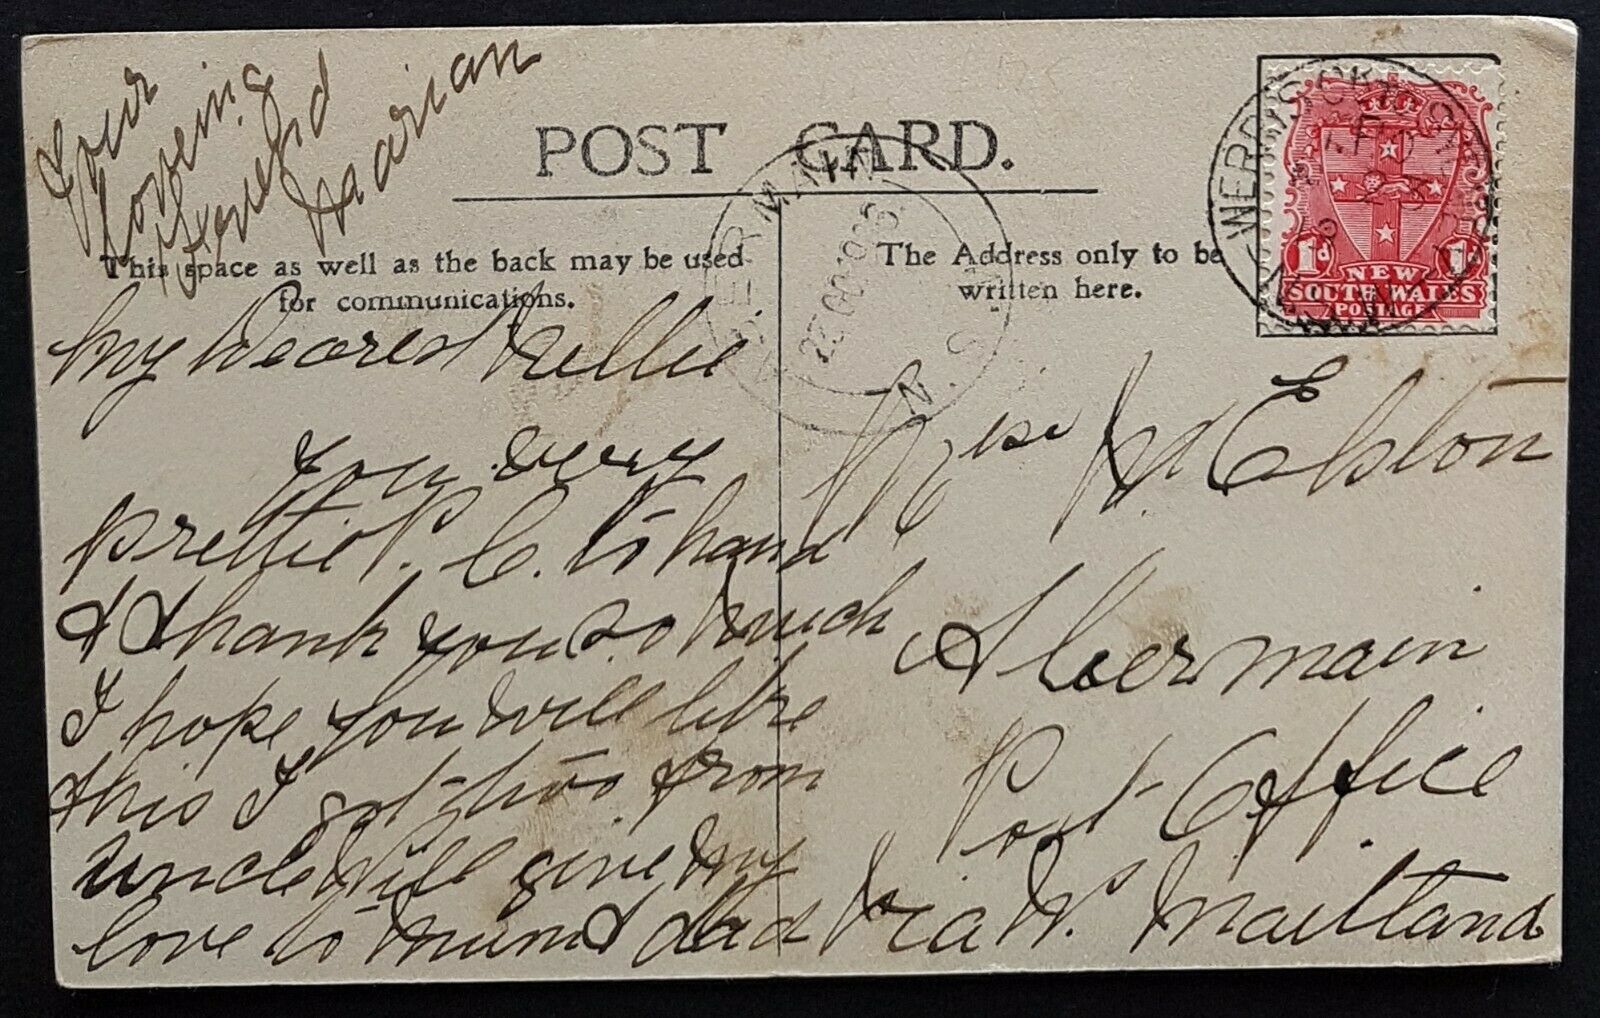 Your
loveing
friend
Marian
POST CARD.
This space as well as the back may be used
for communications.
The Address only to be
written here.
1d 1d
NEW
SOUTH WALES
POSTAGE
WERRIS CREEK
ABERMAIN
N.S.W
My Dearest Nellie
your very
prettie P. C. to hand
& thank you so much
I hope you will like
this I got two from
uncle Will give my
love to mum & dad
Miss N Ebston
Abermain
Post Office
Via W. Maitland